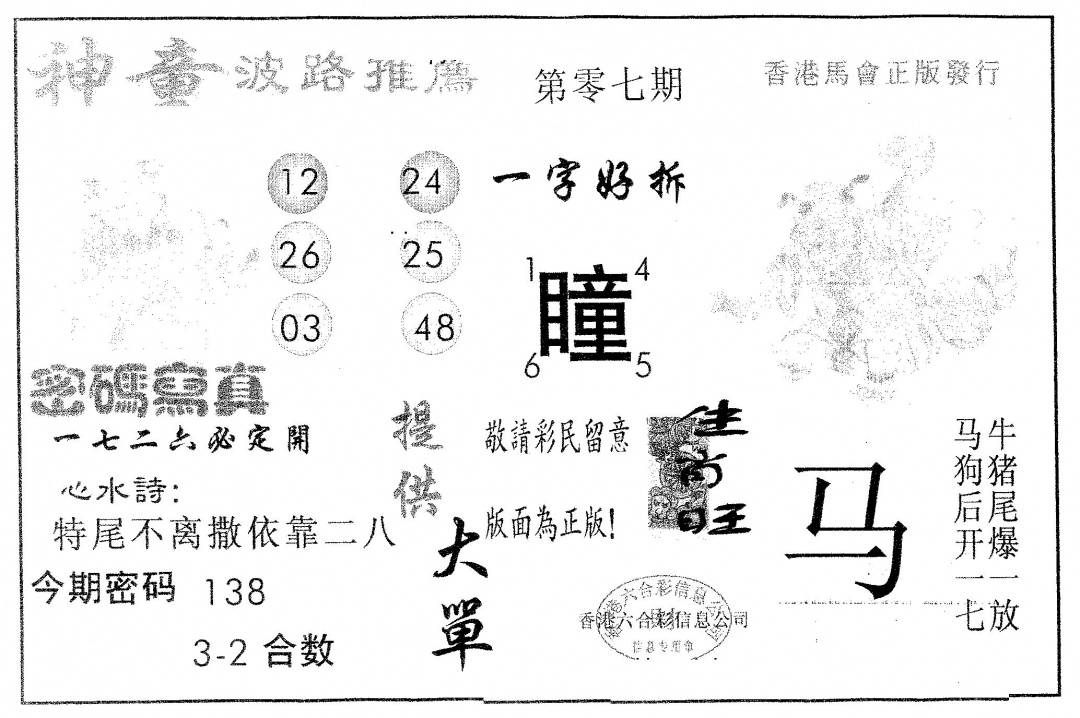 神童波路推薦
第零七期
香港馬會正版發行
12 24
26 25
03 48
一字好拆
1 4
瞳
6 5
密碼寫真
一七二六必定開
心水詩:
特尾不离撒依靠二八
今期密码 138
3-2 合数
提供
大單
敬請彩民留意
版面為正版!
生肖旺
马
牛猪尾爆一放
马狗后开一七
香港六合彩信息公司
香港六合彩信息公司
信息专用章